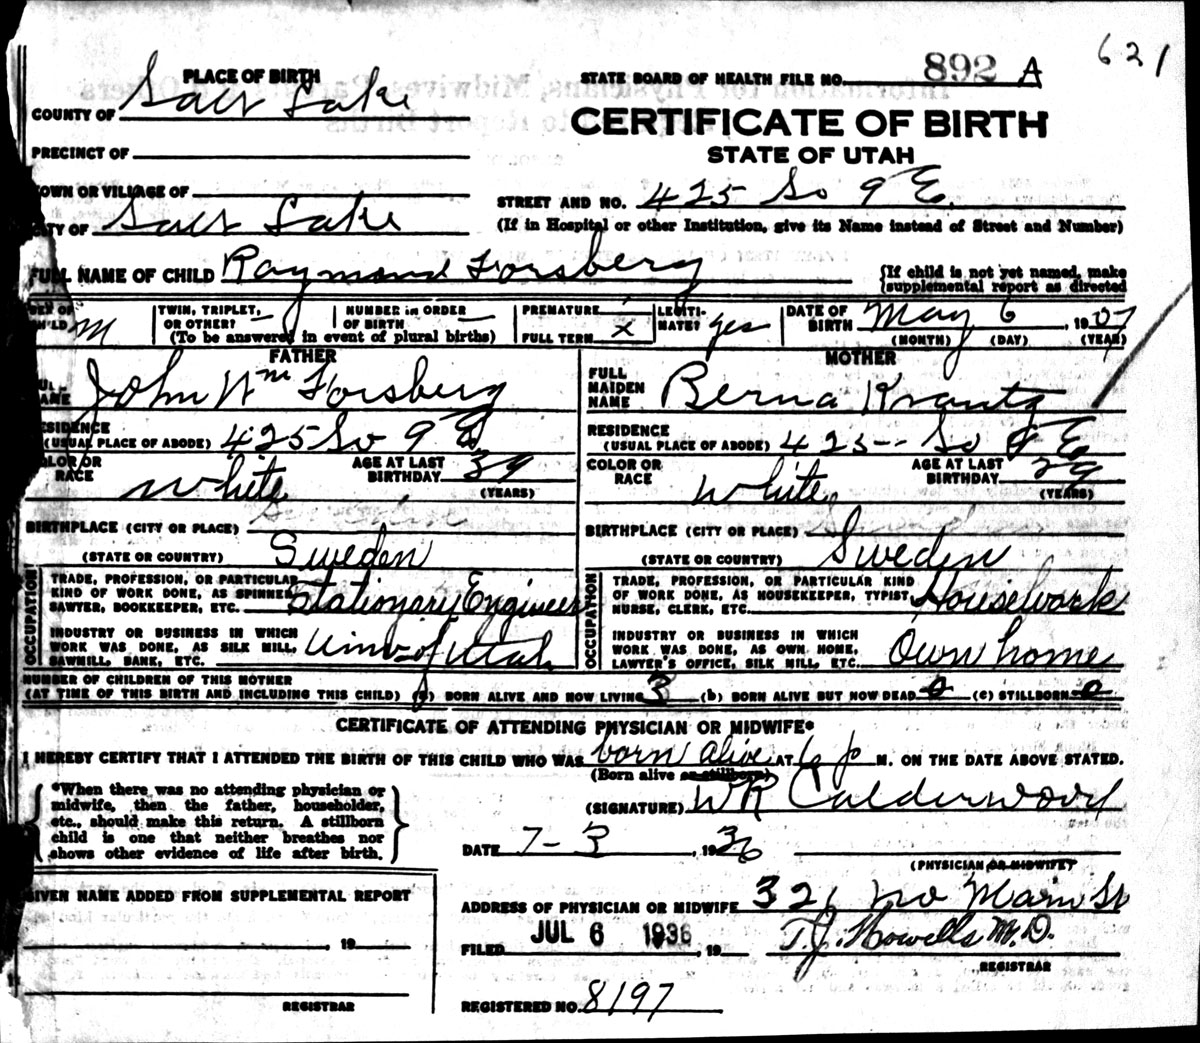 621
PLACE OF BIRTH
STATE BOARD OF HEALTH FILE NO. 892 A
COUNTY OF Salt Lake
CERTIFICATE OF BIRTH
PRECINCT OF
STATE OF UTAH
TOWN OR VILLAGE OF
STREET AND NO. 425 So 9 E.
CITY OF Salt Lake
(If in Hospital or other Institution, give its Name instead of Street and Number)
FULL NAME OF CHILD Raymond Forsberg
{If child is not yet named, make
supplemental report as directed
M
TWIN, TRIPLET, OR OTHER? –
NUMBER in ORDER OF BIRTH –
(To be answered in event of plural births)
PREMATURE
FULL TERM x
LEGITI-MATE? yes
DATE OF BIRTH May 6, 1907
(MONTH) (DAY) (YEAR)
FATHER
John Wm Forsberg
RESIDENCE
(USUAL PLACE OF ABODE) 425 So 9 E
COLOR OR RACE White
AGE AT LAST BIRTHDAY 39 (YEARS)
BIRTHPLACE (CITY OR PLACE)
(STATE OR COUNTRY) Sweden
OCCUPATION
TRADE, PROFESSION, OR PARTICULAR
KIND OF WORK DONE, AS SPINNER,
SAWYER, BOOKKEEPER, ETC. Stationary Engineer
INDUSTRY OR BUSINESS IN WHICH
WORK WAS DONE, AS SILK MILL,
SAWMILL, BANK, ETC. Univ of Utah
MOTHER
FULL MAIDEN NAME Berna Krantz
RESIDENCE
(USUAL PLACE OF ABODE) 425-- So 9 E
COLOR OR RACE White
AGE AT LAST BIRTHDAY 29 (YEARS)
BIRTHPLACE (CITY OR PLACE)
(STATE OR COUNTRY) Sweden
OCCUPATION
TRADE, PROFESSION, OR PARTICULAR KIND
OF WORK DONE, AS HOUSEKEEPER, TYPIST
NURSE, CLERK, ETC. Housework
INDUSTRY OR BUSINESS IN WHICH
WORK WAS DONE, AS OWN HOME,
LAWYER'S OFFICE, SILK MILL, ETC. Own home
NUMBER OF CHILDREN OF THIS MOTHER
(AT TIME OF THIS BIRTH AND INCLUDING THIS CHILD) (a) BORN ALIVE AND NOW LIVING 3 (b) BORN ALIVE BUT NOW DEAD 0 (c) STILLBORN 0
CERTIFICATE OF ATTENDING PHYSICIAN OR MIDWIFE*
I HEREBY CERTIFY THAT I ATTENDED THE BIRTH OF THIS CHILD WHO WAS born alive AT 6 p M. ON THE DATE ABOVE STATED.
(Born alive or stillborn)
*When there was no attending physician or
midwife, then the father, householder,
etc., should make this return. A stillborn
child is one that neither breathes nor
shows other evidence of life after birth.
(SIGNATURE) WR Calderwood
DATE 7-3, 1936
(PHYSICIAN OR MIDWIFE?)
GIVEN NAME ADDED FROM SUPPLEMENTAL REPORT
ADDRESS OF PHYSICIAN OR MIDWIFE 321 No Main St
, 19
FILED JUL 6 1936, 19
T.J. Howells M.D.
REGISTRAR
REGISTRAR
REGISTERED NO. 8197